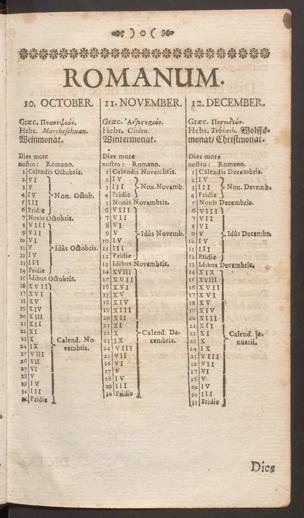 ROMANUM.
10. OCTOBER.
Græc.
Hebr. Marcheschuan.
Weinmonat.
Dies more
nostro: Romano.
1 Calendis Octobris.
2 VI
3 V
4 IV
5 III
6 Pridie
Non. Octob.
7 Nonis Octobris.
8 VIII
9 VII
10 VI
11 V
12 IV
13 III
14 Pridie
Idûs Octobris.
15 Idibus Octobris.
16 XVII
17 XVI
18 XV
19 XIV
20 XIII
21 XII
22 XI
23 X
24 IX
25 VIII
26 VII
27 VI
28 V
29 IV
30 III
31 Pridie
Calend. No-
vembris.
11. NOVEMBER.
Græc.
Hebr. Cisleu.
Wintermonat.
Dies more
nostro: Romano.
1 Calendis Novembris.
2 IV
3 III
4 Pridie
Non. Novemb.
5 Nonis Novembris.
6 VIII
7 VII
8 VI
9 V
10 IV
11 III
12 Pridie
Idûs Novemb.
13 Idibus Novembris.
14 XVIII
15 XVII
16 XVI
17 XV
18 XIV
19 XIII
20 XII
21 XI
22 X
23 IX
24 VIII
25 VII
26 VI
27 V
28 IV
29 III
30 Pridie
Calend. De-
cembris.
12. DECEMBER.
Græc.
Hebr. Tebheth. Wolffs-
monat/ Christmonat.
Dies more
nostro: Romano.
1 Calendis Decembris.
2 IV
3 III
4 Pridie
Non. Decemb.
5 Nonis Decembris.
6 VIII
7 VII
8 VI
9 V
10 IV
11 III
12 Pridie
Idûs Decemb.
13 Idibus Decembris.
14 XIX
15 XVIII
16 XVII
17 XVI
18 XV
19 XIV
20 XIII
21 XII
22 XI
23 X
24 IX
25 VIII
26 VII
27 VI
28 V
29 IV
30 III
31 Pridie
Calend. Ja-
nuarii.
Dies